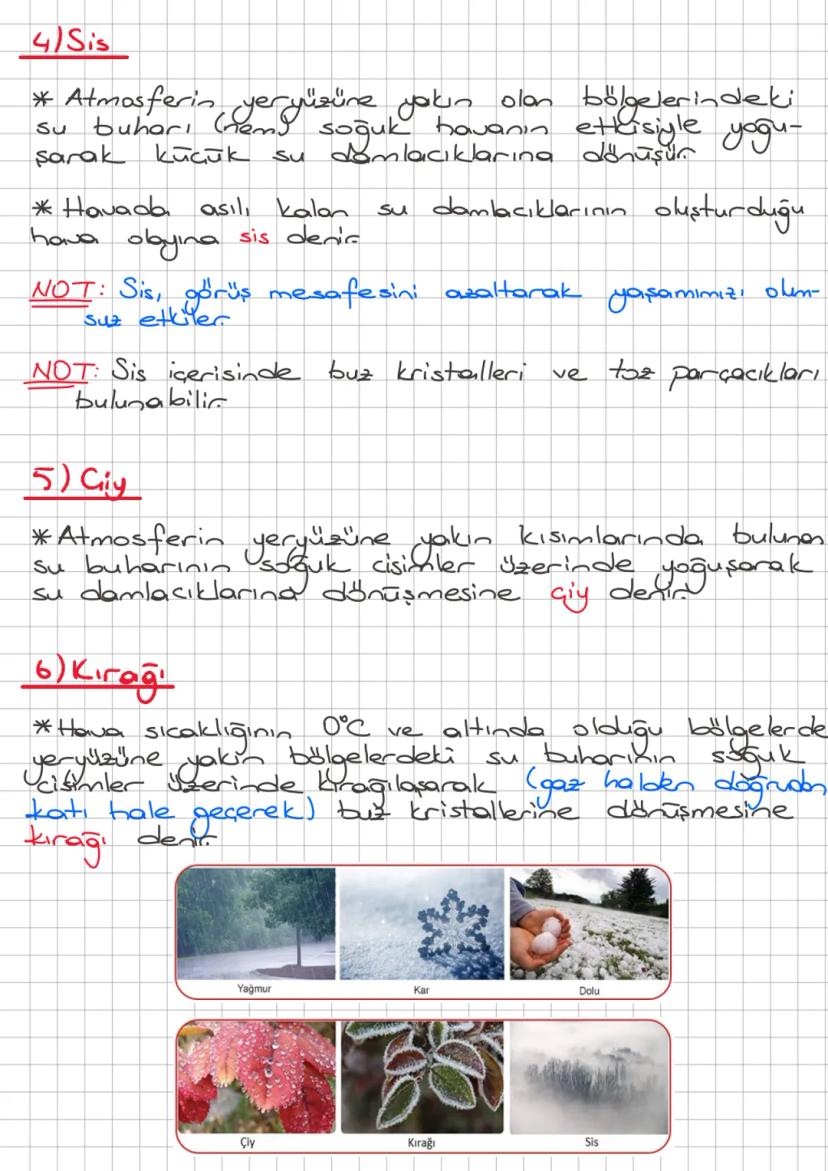 4) Sis
* Atmosferin yeryüzüne yakın olan bölgelerindeki
su buharı (nem) soğuk havanın etkisiyle yoğu-
şarak küçük su damlacıklarına dönüşür.
* Havada asılı kalan su damlacıklarının oluşturduğu
hava olayına sis denir.
NOT: Sis, görüş mesafesini azaltarak yaşamımızı olum-
suz etkiler.
NOT: Sis içerisinde buz kristalleri ve toz parçacıkları
bulunabilir.
5) Çiy
* Atmosferin yeryüzüne yakın kısımlarında bulunan
su buharının soğuk cisimler üzerinde yoğuşarak
su damlacıklarına dönüşmesine çiy denir.
6) Kırağı
* Hava sıcaklığının 0°C ve altında olduğu bölgelerde
yeryüzüne yakın bölgelerdeki su buharının soğuk
cisimler üzerinde kırağılaşarak (gaz halden doğrudan
katı hale geçerek) buz kristallerine dönüşmesine
kırağı denir.
Yağmur Kar Dolu
Çiy Kırağı Sis